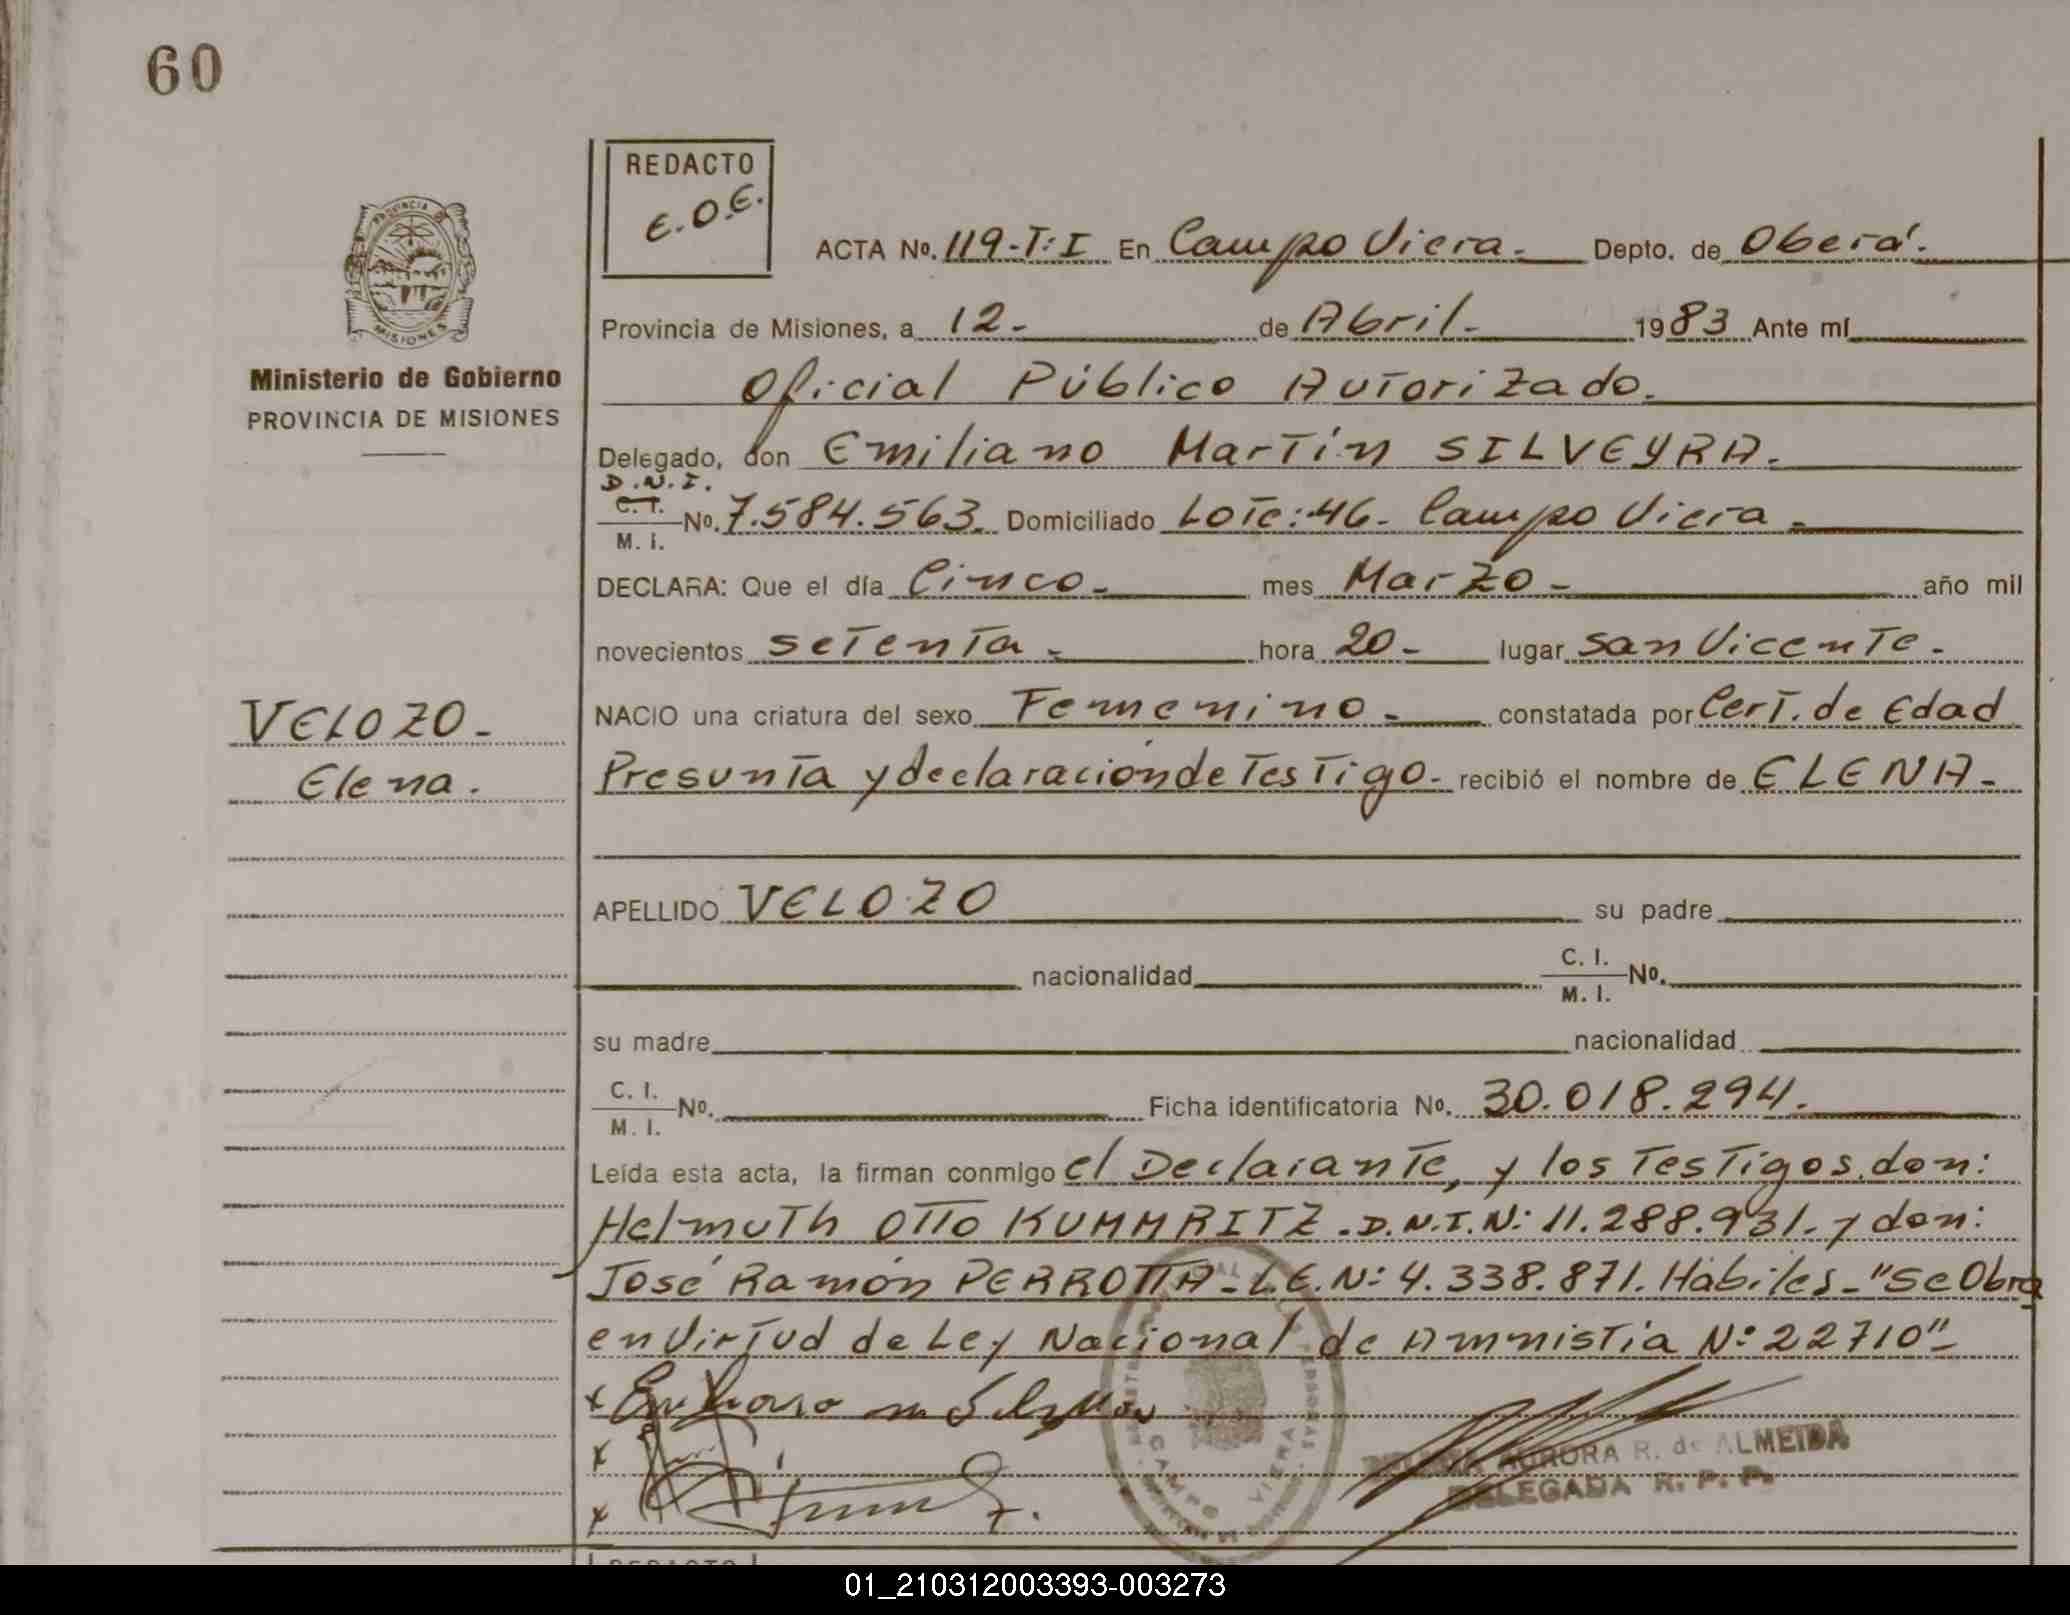 60
REDACTO
E.O.E.
ACTA No. 119-T:I En Campo Viera.- Depto. de Oberá.
PROVINCIA DE
MISIONES
Provincia de Misiones, a 12- de Abril- 1983 Ante mí
Ministerio de Gobierno
PROVINCIA DE MISIONES
Oficial Público Autorizado.
Delegado, don Emiliano Martín SILVEYRA.
D.N.I.
C. I.
M. I. No. 7.584.563 Domiciliado Lote:46- Campo Viera-
DECLARA: Que el día Cinco- mes Marzo- año mil
novecientos setenta- hora 20- lugar San Vicente-
VELOZO-
Elena.
NACIO una criatura del sexo Femenino- constatada por Cert. de Edad
Presunta y declaración de Testigo- recibió el nombre de ELENA-
APELLIDO VELOZO su padre
nacionalidad C. I. M. I. No.
su madre nacionalidad
C. I. M. I. No. Ficha identificatoria No. 30.018.294.
Leída esta acta, la firman conmigo el Declarante, y los Testigos, don:
Helmuth Otto KUMMRITZ. D.N.I.N: 11.288.931. y don:
José Ramón PERROTTA- L.E.N: 4.338.871. Hábiles- "Se Obra
en Virtud de Ley Nacional de Amnistia N: 22710"-
x
x
x
CAMPO VIERA
AURORA R. de ALMEIDA
DELEGADA R. P. P.
REDACTO
01_210312003393-003273